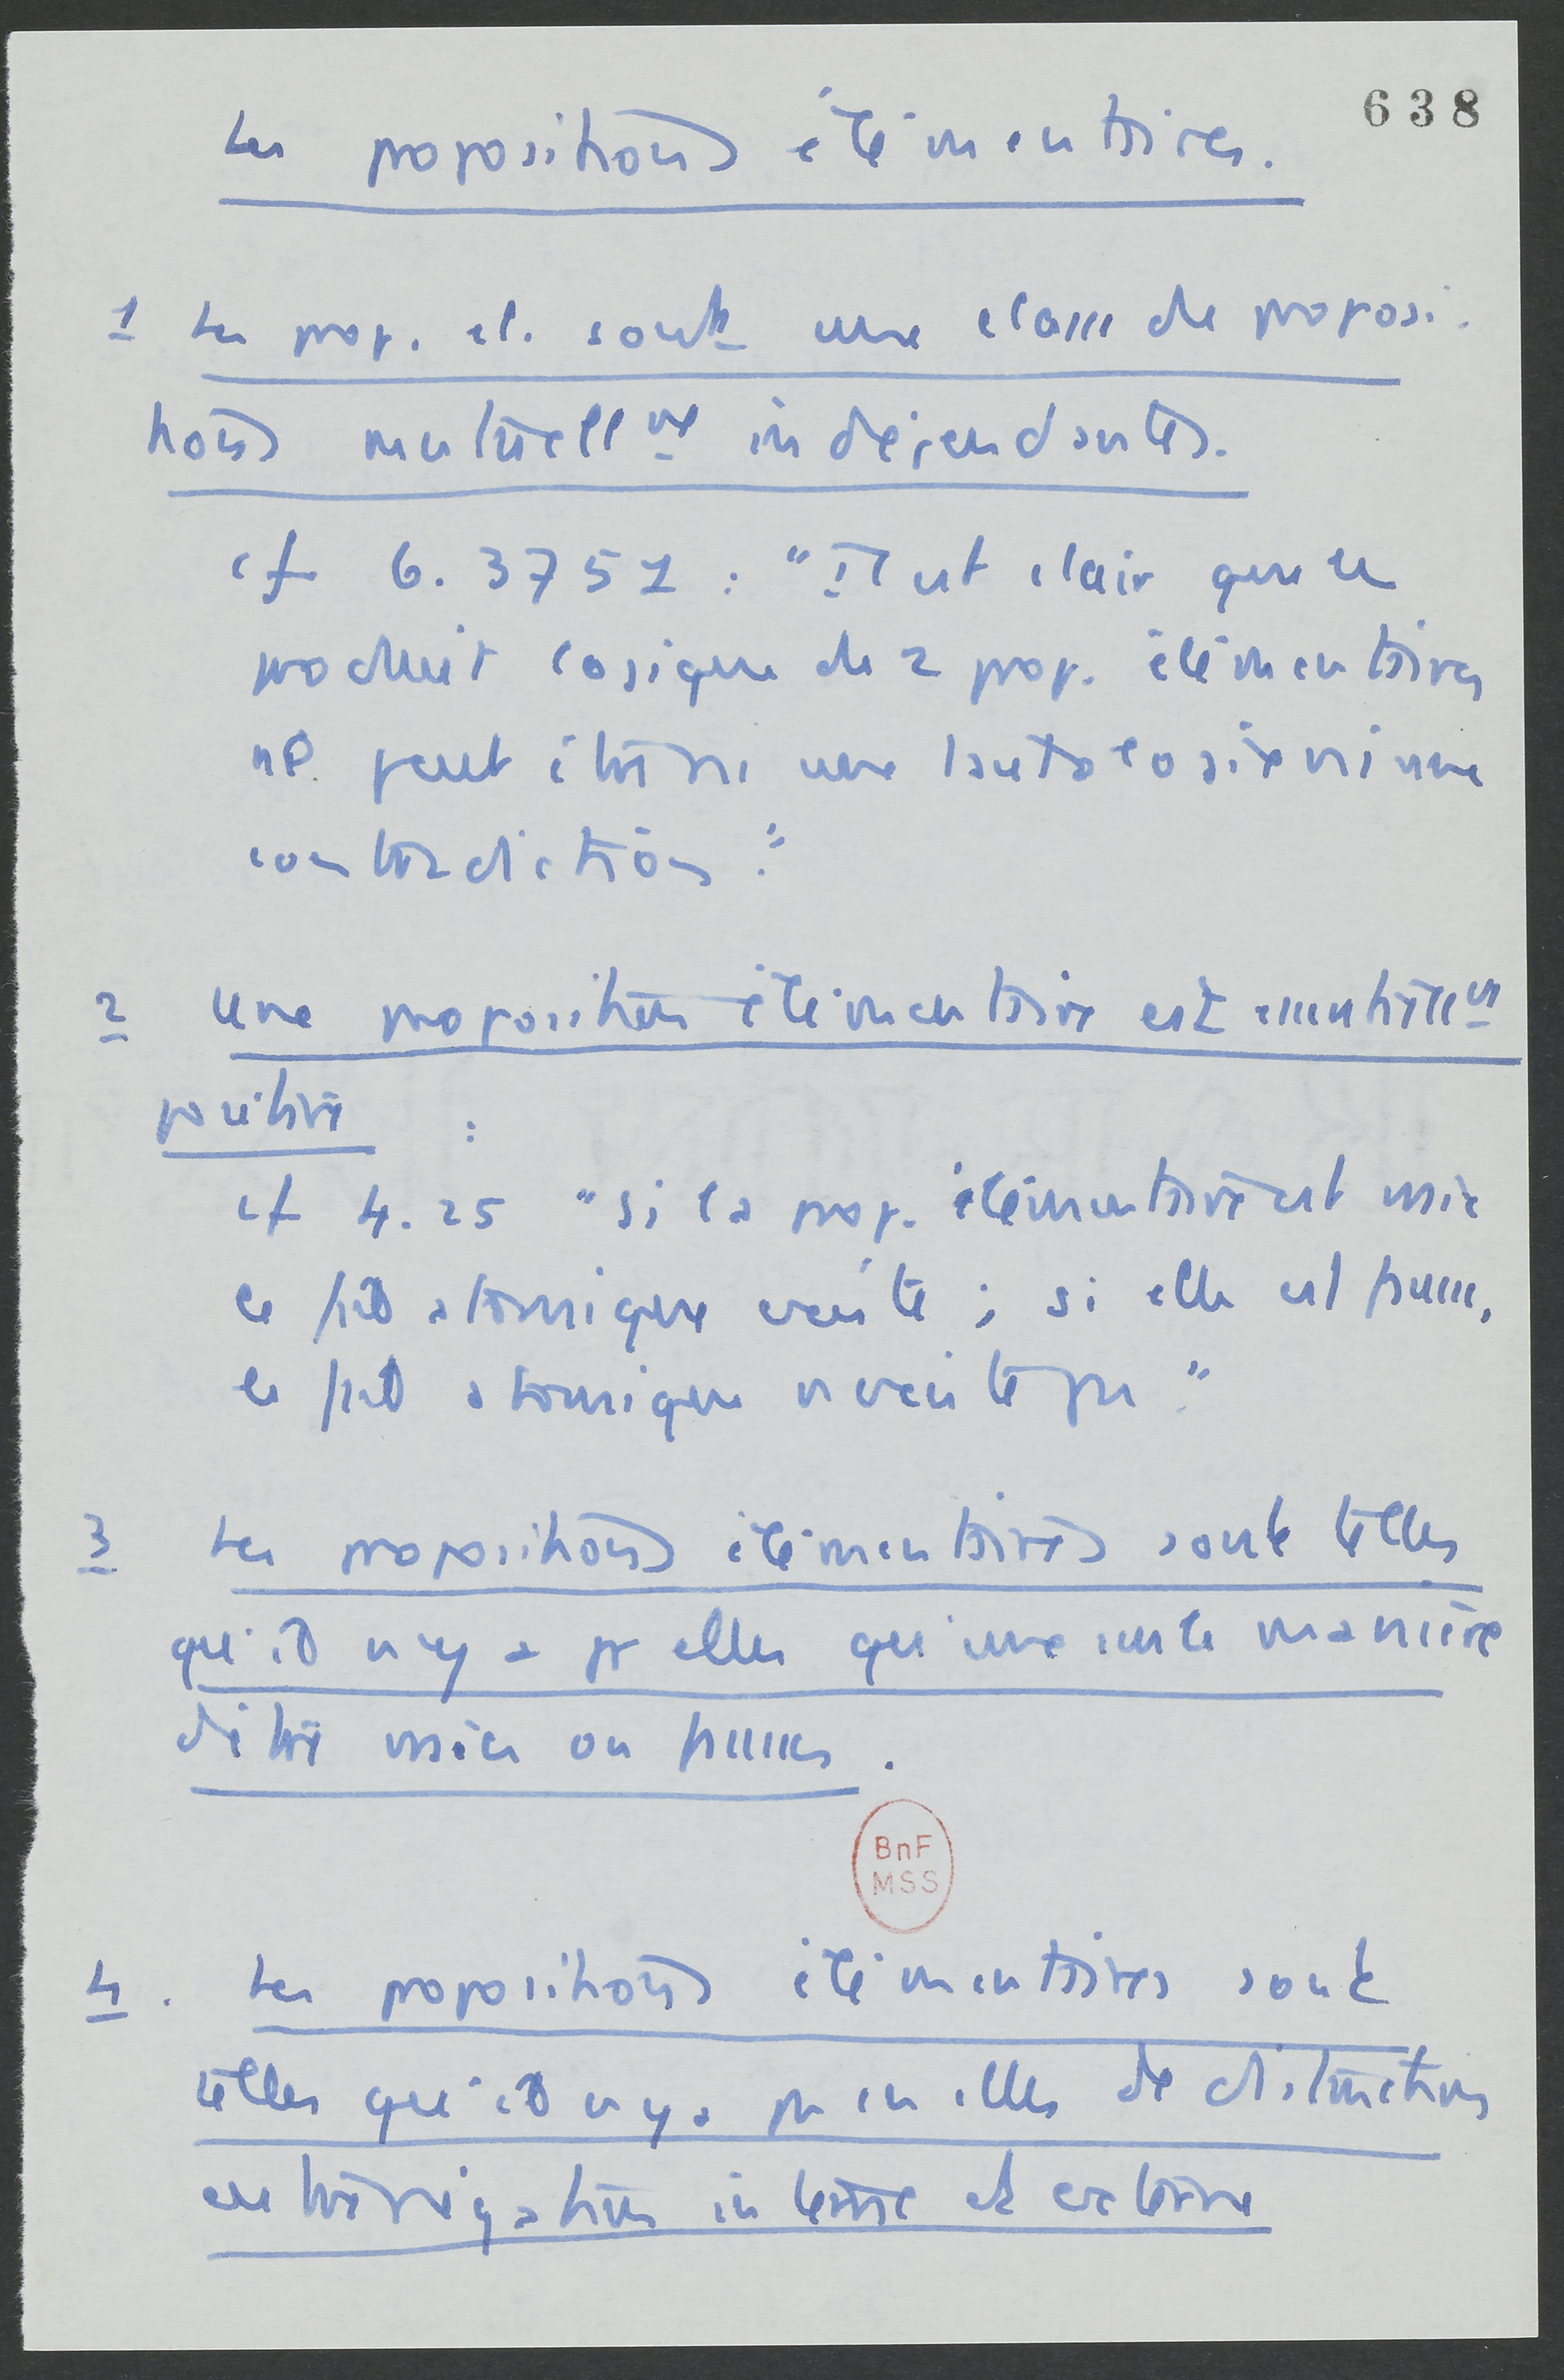 638
Les propositions élémentaires.
1 Les prop. el. sont une classe de proposi-
tions mutuellmt indépendantes.
cf 6. 3751 : "Il est clair que le
produit logique de 2 prop. élémentaires
ne peut être ni une tautologie ni une
contradiction."
2 Une proposition élémentaire est essentiellmt
positive :
cf 4.25 "si la prop. élémentaire est vraie
le fait atomique existe ; si elle est fausse,
le fait atomique n'existe pas."
3 Les propositions élémentaires sont telles
qu'il n'y a pr elles qu'une seule manière
d'être vraies ou fausses.
BnF
MSS
4. Les propositions élémentaires sont
telles qu'il n'y a pas en elles de distinction
entre négation interne et externe